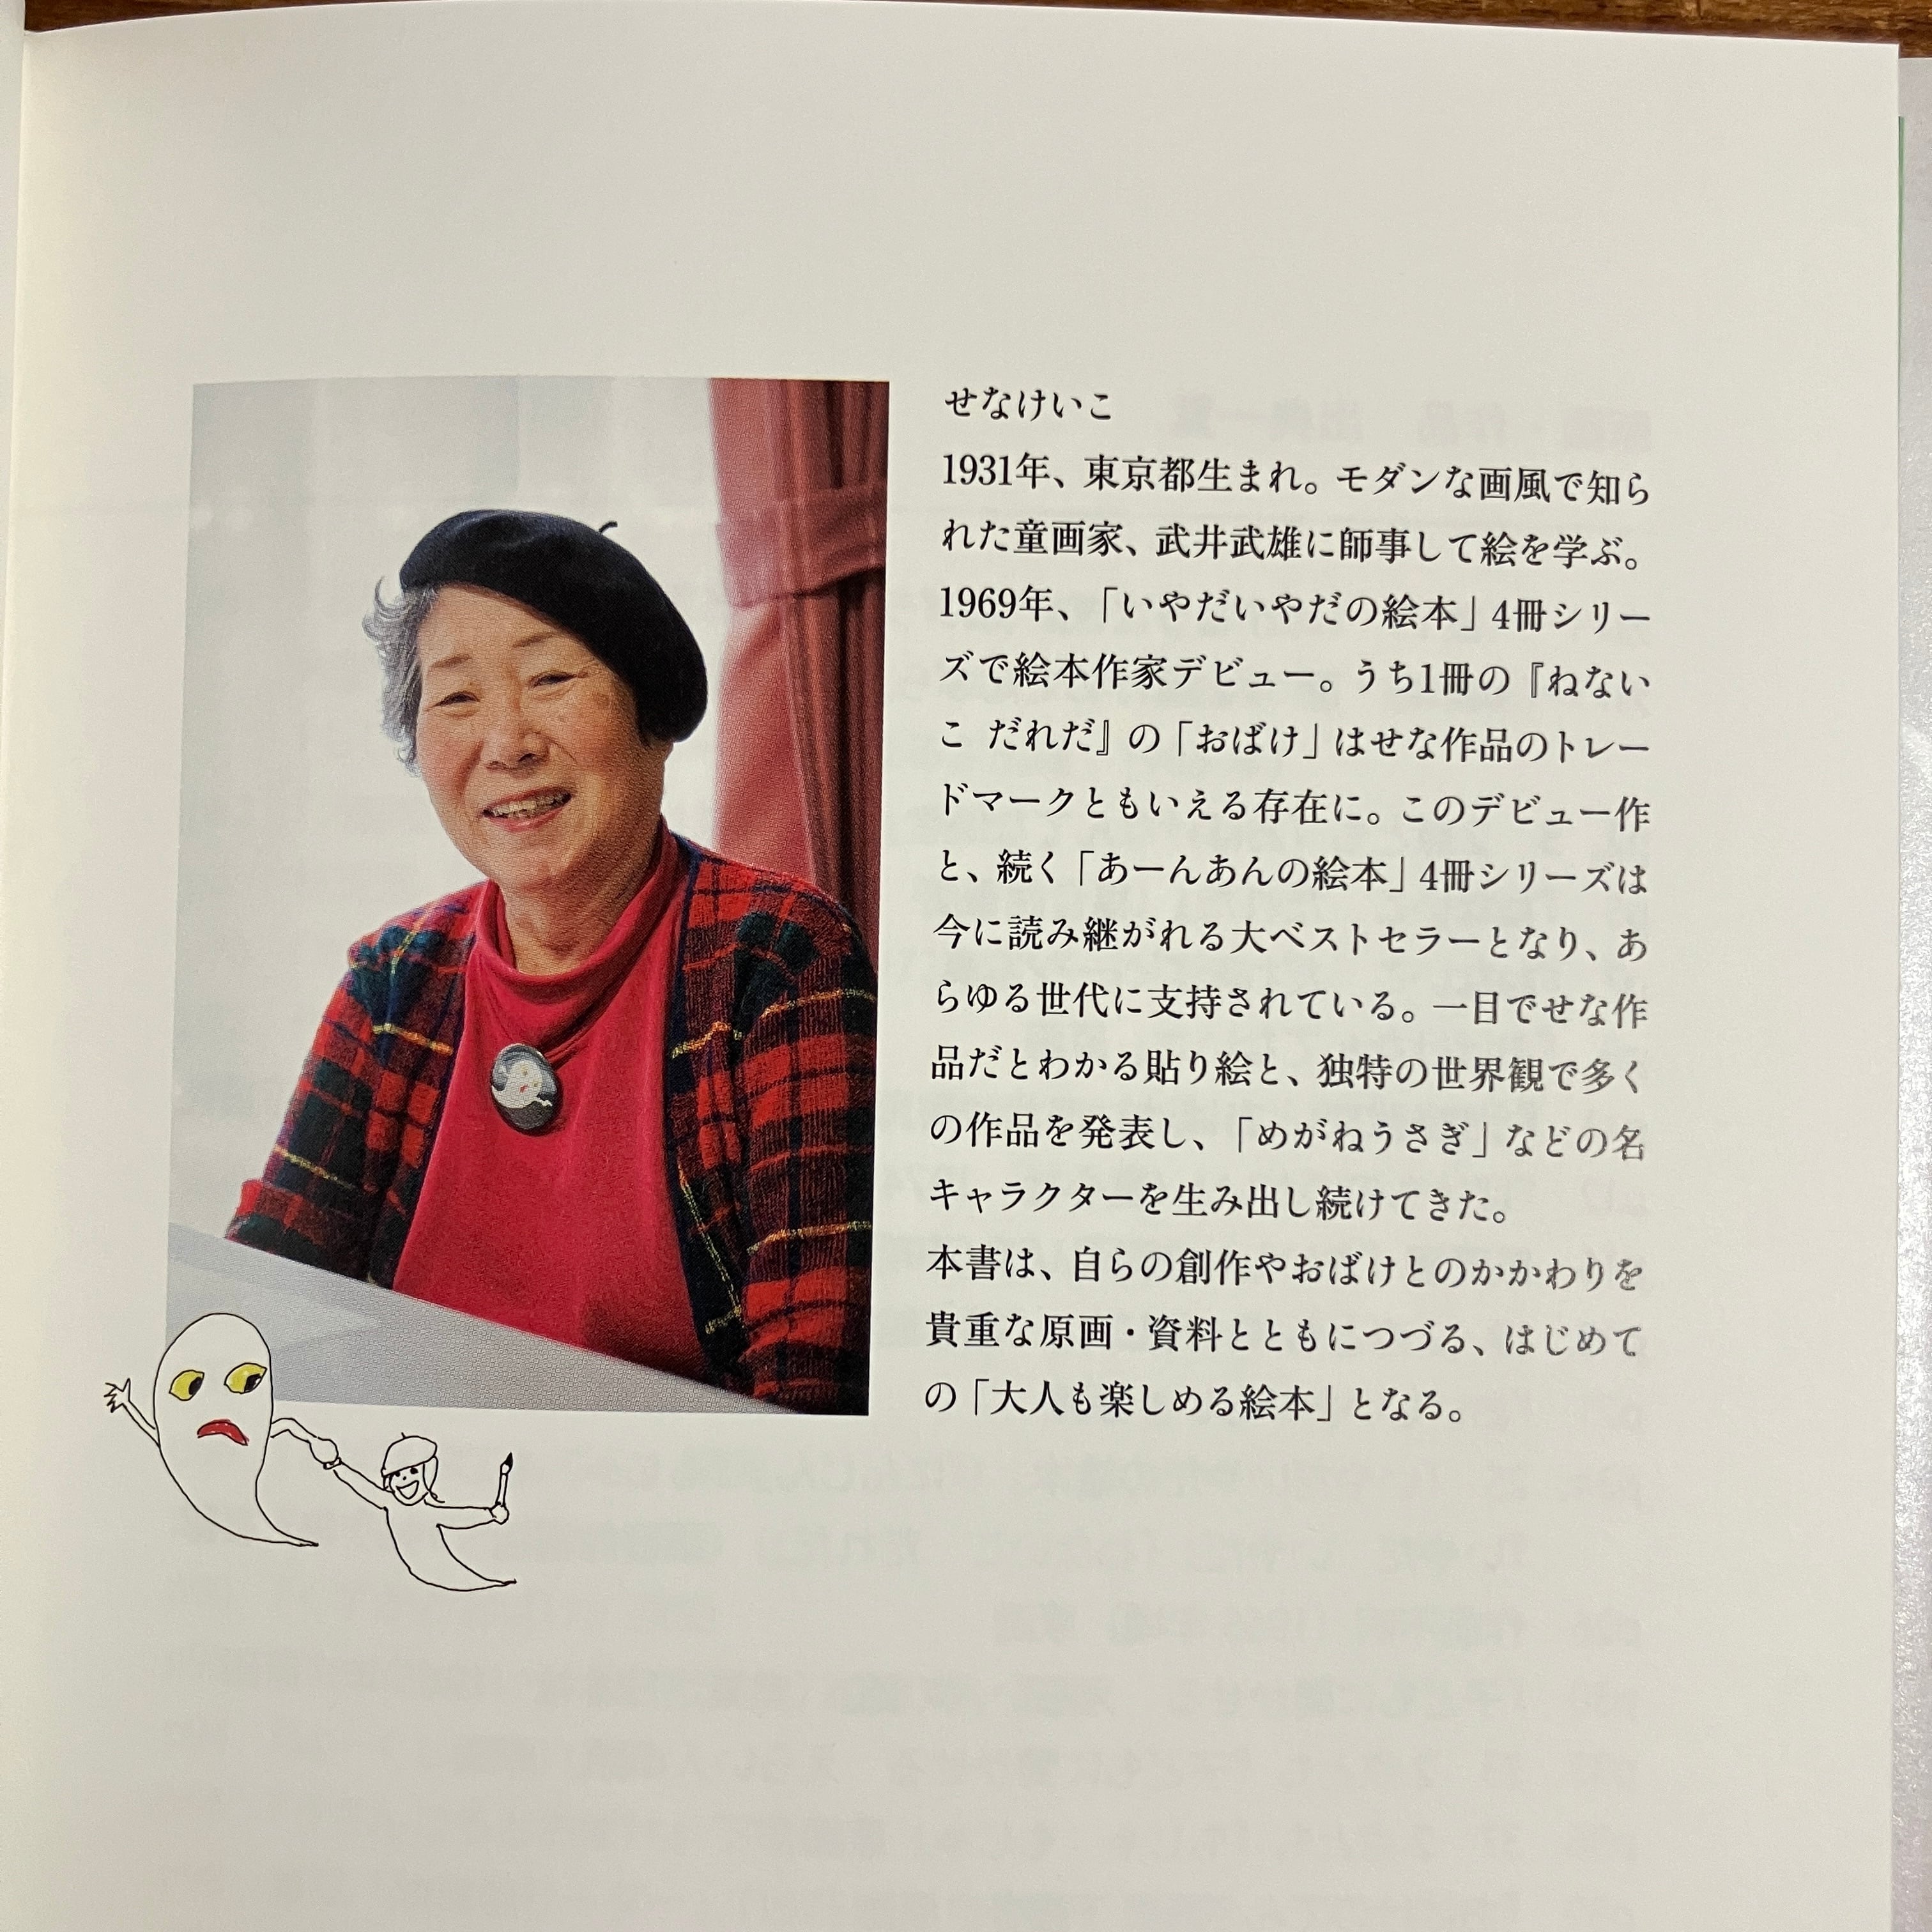 せなけいこ
1931年、東京都生まれ。モダンな画風で知ら
れた童画家、武井武雄に師事して絵を学ぶ。
1969年、「いやだいやだの絵本」4冊シリー
ズで絵本作家デビュー。うち1冊の『ねない
こ だれだ』の「おばけ」はせな作品のトレー
ドマークともいえる存在に。このデビュー作
と、続く「あーんあんの絵本」4冊シリーズは
今に読み継がれる大ベストセラーとなり、あ
らゆる世代に支持されている。一目でせな作
品だとわかる貼り絵と、独特の世界観で多く
の作品を発表し、「めがねうさぎ」などの名
キャラクターを生み出し続けてきた。
本書は、自らの創作やおばけとのかかわりを
貴重な原画・資料とともにつづる、はじめて
の「大人も楽しめる絵本」となる。